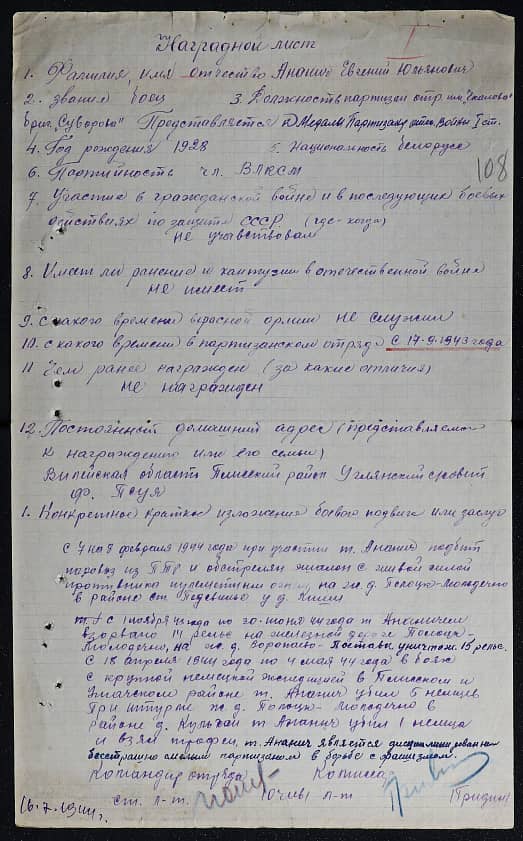 Наградной лист
I
1. Фамилия, имя отчество Ананич Евгений Юльянович
2. звание боец 3. Должность партизан отр. им. Чкалова
бриг. "Суворова" Представляется к Медали Партизану отеч. Войны I ст.
4. Год рождения 1928 5. Национальность белорусс
6. Партийность чл. ВЛКСМ
108
7. Участие в гражданской войне и в последующих боевых
действиях по защите СССР (где-когда)
не учавствовал
8. Имеет ли ранения и контузии в отечественной войне
не имеет
9. с какого времени в красной армии не служил
10. с какого времени в партизанском отряде с 17-9-1943 года
11 Чем ранее награжден (за какие отличия)
не награжден
12. Постоянный домашний адрес (представляемого
к награждению или его семьи)
Вилейская область Плисский район Углянский с/совет
Псуя
1. Конкретное краткое изложение боевого подвига или заслуг
С 7 на 8 февраля 1944 года при участии т. Ананич подбит
паровоз из ПТР и обстрелян эшалон с живой силой
противника пулеметным огнем, на ж. д. Полоцк-Молодечно
в районе ст. у д.
с 1 ноября 43 года по 20-июня 44 года т Ананичем
взорвано 14 рельс на железной дороге Полоцк-
Молодечно, на ж. д. Воропаево-Поставы уничтож. 15 рельс.
С 18 апреля 1944 года по 4 мая 44 года в боях
с крупной немецкой экспедицией в Плисском и
Ушачском районе т. Ананич убил 5 немцев
При штурме ж д Полоцк-Молодечно в
районе д. т Ананич убил 1 немца
и взял трофеи, т. Ананич является дисциплинированным
бесстрашно смелым партизаном в борьбе с фашизмом.
Командир отряда Комиссар
ст. л-т. л-т
16.7.1944 г.